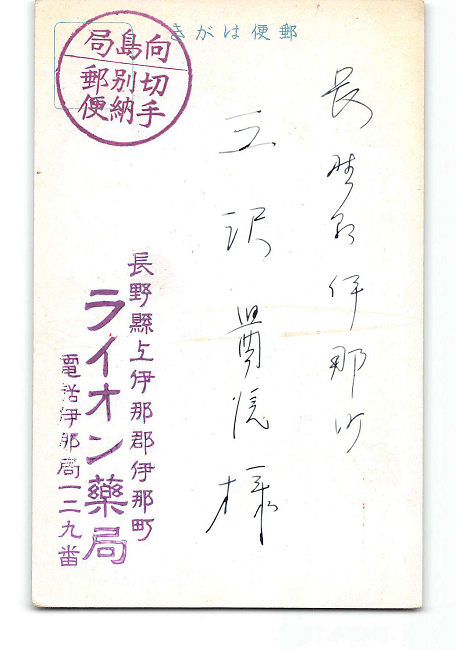 郵便はがき
向島局
切手
別納
郵便
長野縣伊那町
三沢様
長野縣上伊那郡伊那町
ライオン藥局
電話伊那局一二九番